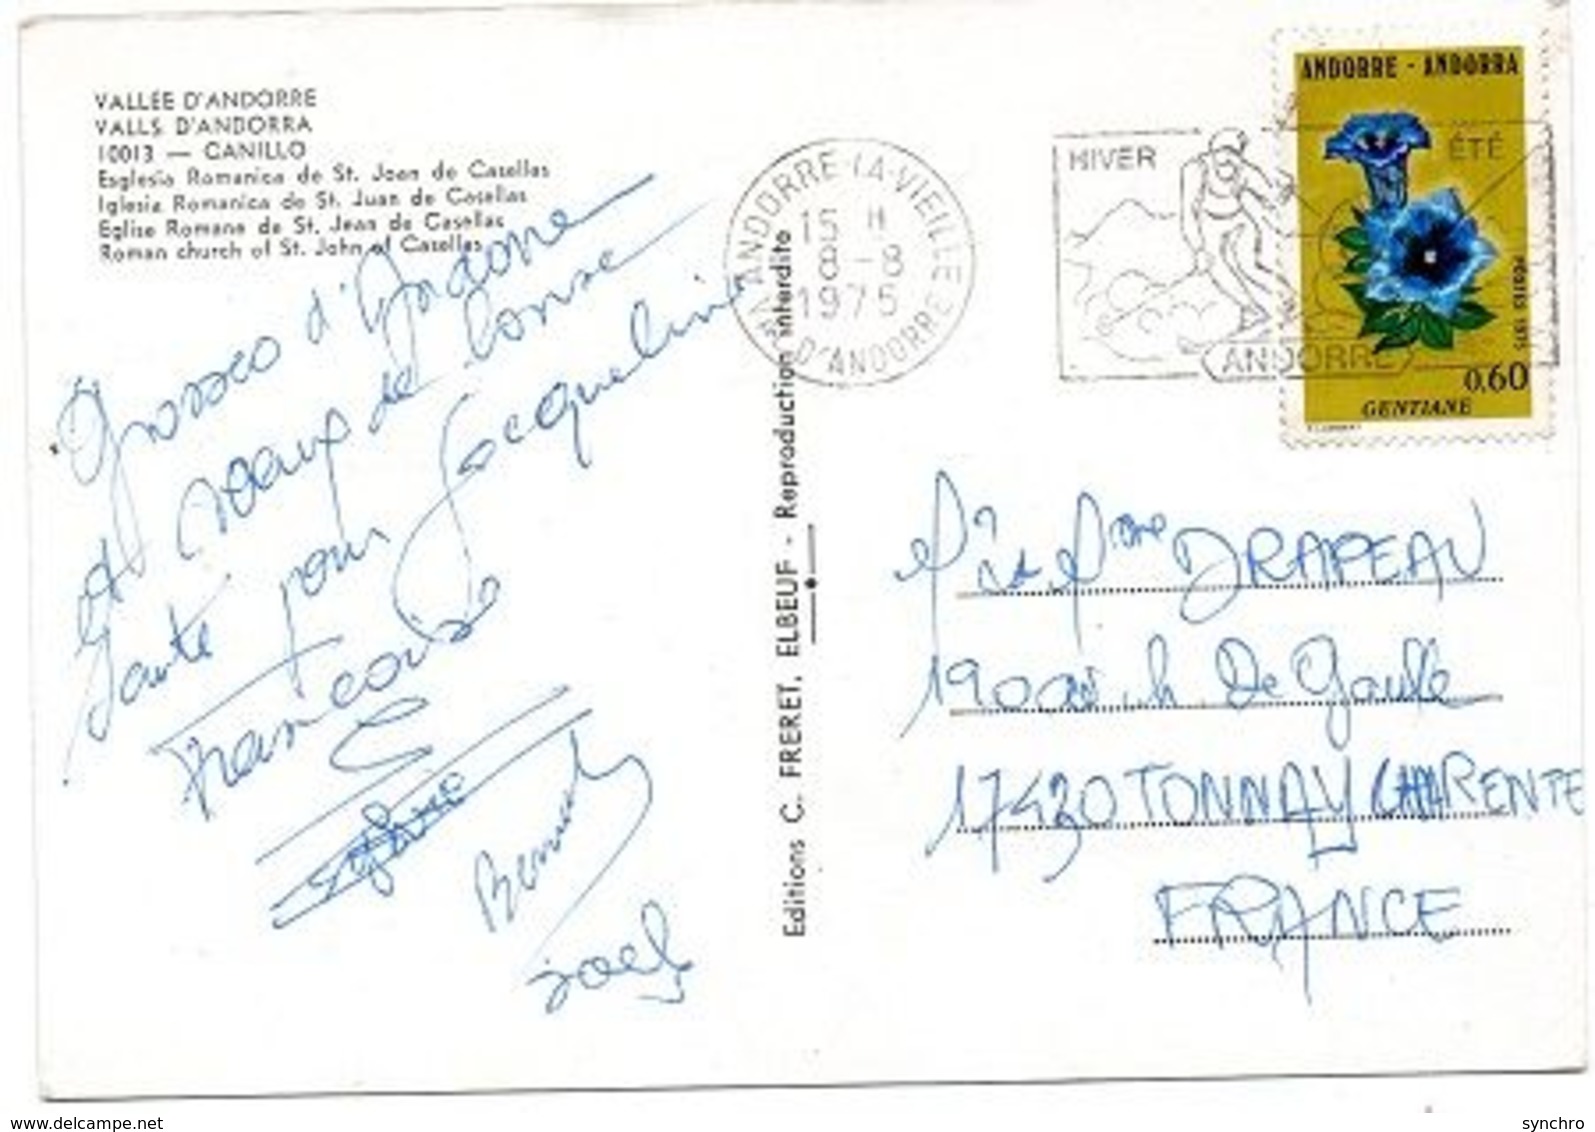 VALLÉE D'ANDORRE
VALLS D'ANDORRA
10013 — CANILLO
Esglesia Romanica de St. Joan de Casellas
Iglesia Romanica de St. Juan de Casellas
Eglise Romane de St. Jean de Casellas
Roman church of St. John of Casellas
d'Andorre
et voeux de bonne
santé pour Jacqueline
Francoise
Sylvie
Bernard
Joel
Editions C. FRERET, ELBEUF - Reproduction interdite
ANDORRE-LA-VIEILLE
15 H
8-8
1975
VAL D'ANDORRE
HIVER
ÉTÉ
ANDORRE
ANDORRE - ANDORRA
POSTES 1975
0,60
GENTIANE
Mr et Mme DRAPEAU
190 av. Ch. De Gaulle
17430 TONNAY CHARENTE
FRANCE
www.delcampe.net
synchro